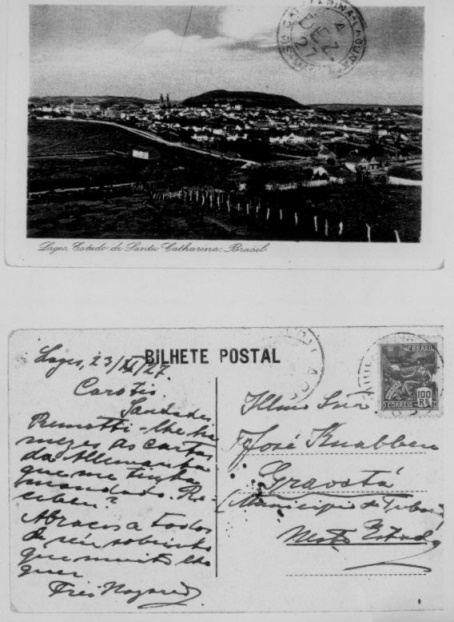 Lages, Estado de Santa Catharina, Brasil.
BILHETE POSTAL
Lages, 23/XI/27.
Saudades.
Remetti-lhe ha
mezes as cartas
da Allemanha
que me tinha
mandado. Re-
cebeu?
Abraços a todos
de seu sobrinho
que muito lhe
quer
Frei
Illmo Snr
José Knabben
Gravatá
(Municipio de Tubarão)
Estado
BRASIL
CORREIO
100
RS